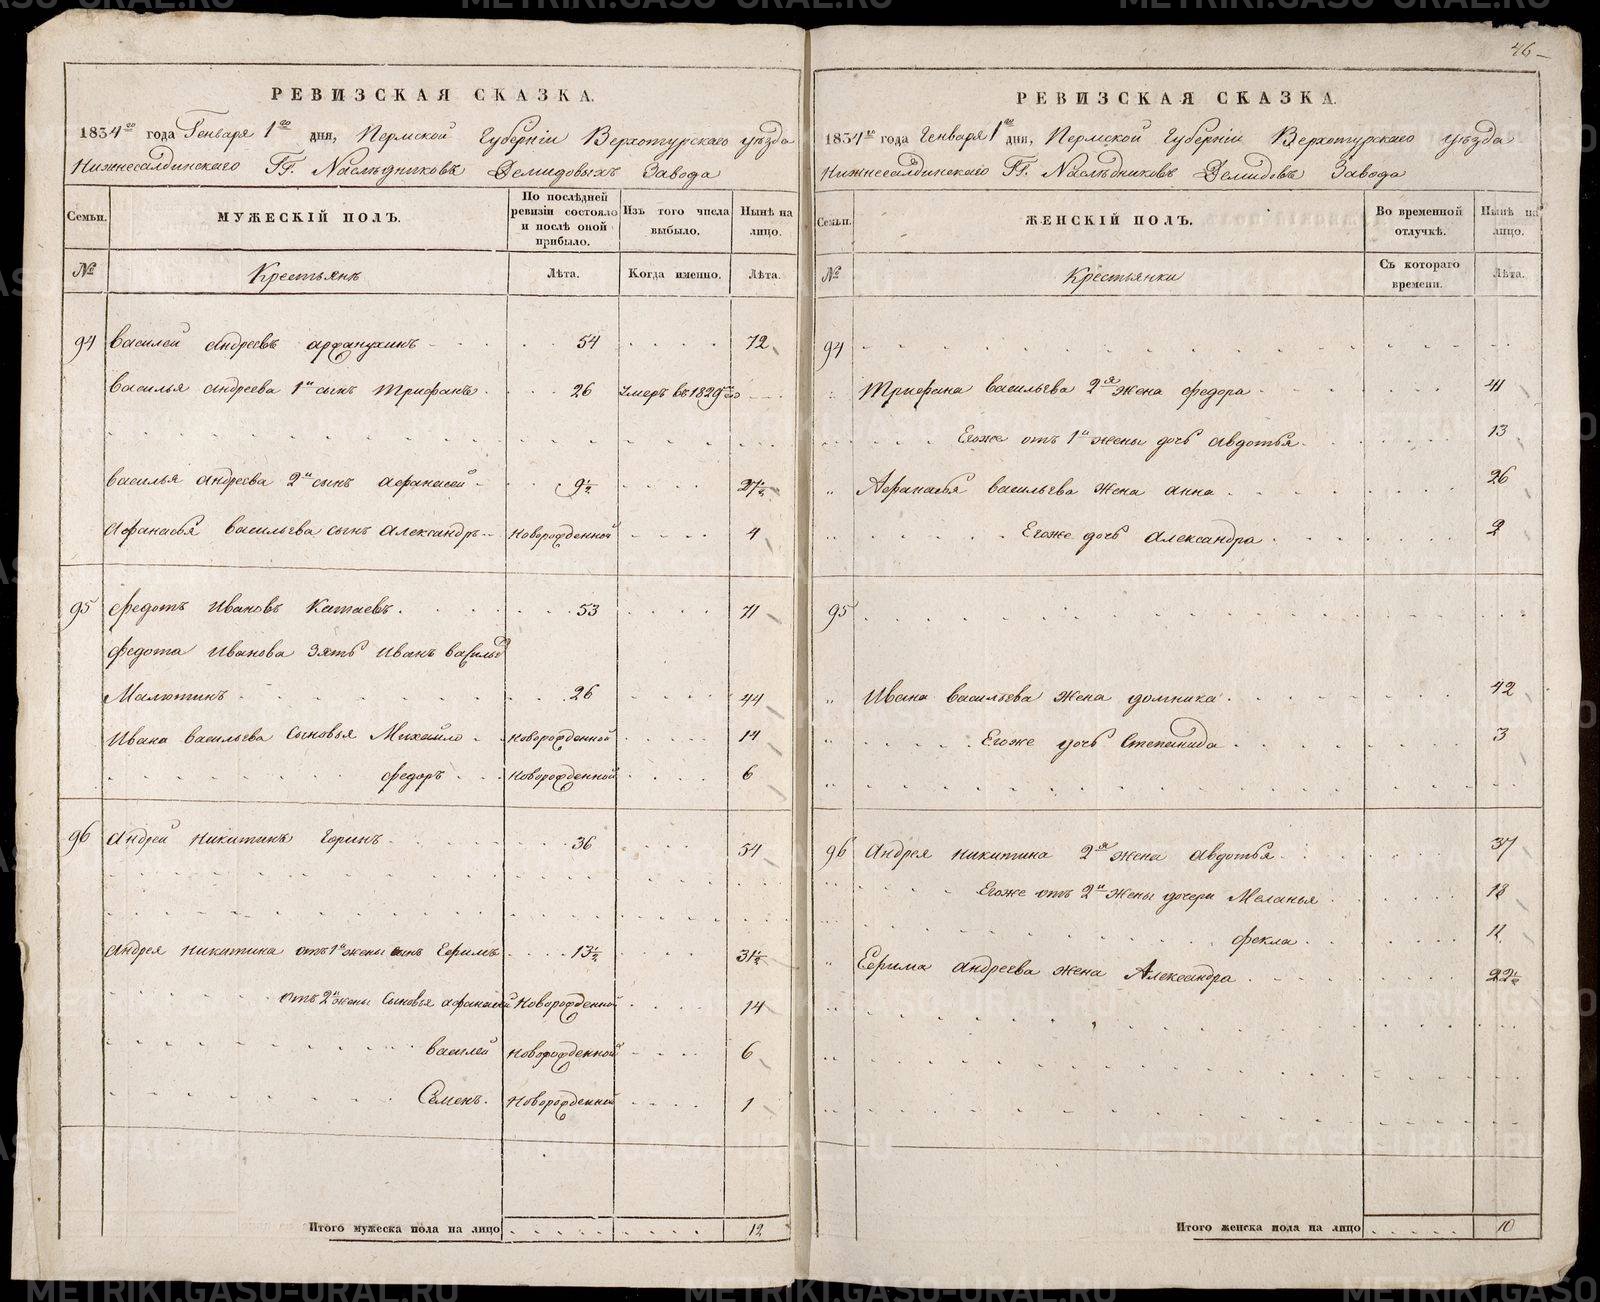 46
РЕВИЗСКАЯ СКАЗКА.
1834го года Генваря 1го дня, Пермской Губерніи Верхотурскаго уѣзда
Нижнесалдинскаго ГГ. Наслѣдниковъ Демидовыхъ Завода
Семьи. МУЖЕСКІЙ ПОЛЪ. По последней ревизіи состояло и послѣ оной прибыло. Изъ того числа выбыло. Нынѣ на лицо.
№ Крестьянъ Лѣта. Когда именно. Лѣта.
94 Василей Андреевъ 54 72
Василья Андреева 1й сынъ Трифанъ 26 Умеръ въ 1829го
Василья Андреева 2й сынъ Афанасей 9½ 27½
Афанасья Васильева сынъ Александръ Новорожденной 4
95 Федотъ Ивановъ Катаевъ 53 71
Федота Иванова Зять Иванъ Васильев
Малютинъ 26 44
Ивана Васильева Сыновья Михайло Новорожденной 14
Федоръ Новорожденной 6
96 Андрей Никитинъ Горинъ 36 54
Андрея Никитина отъ 1й жены сынъ Ефимъ 13½ 31½
отъ 2й жены Сыновья Афанасей Новорожденной 14
Василей Новорожденной 6
Семенъ Новорожденной 1
Итого мужеска пола на лицо 12
РЕВИЗСКАЯ СКАЗКА.
1834го года Генваря 1го дня, Пермской Губерніи Верхотурскаго уѣзда
Нижнесалдинскаго ГГ. Наслѣдниковъ Демидовъ Завода
Семьи. ЖЕНСКІЙ ПОЛЪ. Во временной отлучкѣ. Нынѣ на лицо.
№ Крестьянки Съ котораго времени. Лѣта.
94
Трифана Васильева 2я жена Федора 41
Егоже отъ 1й жены дочь Авдотья 13
" Афанасья Васильева жена Анна 26
Егоже дочь Александра 2
95
" Ивана Васильева жена Домника 42
" Егоже дочь Степанида 3
96 Андрея Никитина 2я жена Авдотья 37
Егоже отъ 2й жены дочери Меланья 18
Фекла 11
" Ефима Андреева жена Александра 22½
Итого женска пола на лицо 10
METRIKI.GASO-URAL.RU